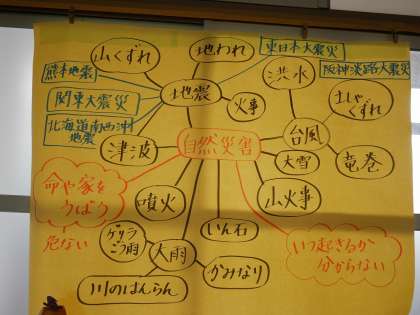 山くずれ
地われ
東日本大震災
熊本地震
阪神淡路大震災
関東大震災
地震
火事
洪水
土しゃ
くずれ
北海道南西沖
地震
津波
自然災害
台風
大雪
竜巻
命や家を
うばう
危ない
噴火
山火事
ゲリラ
ごう雨
大雨
いん石
かみなり
川のはんらん
いつ起きるか
分からない